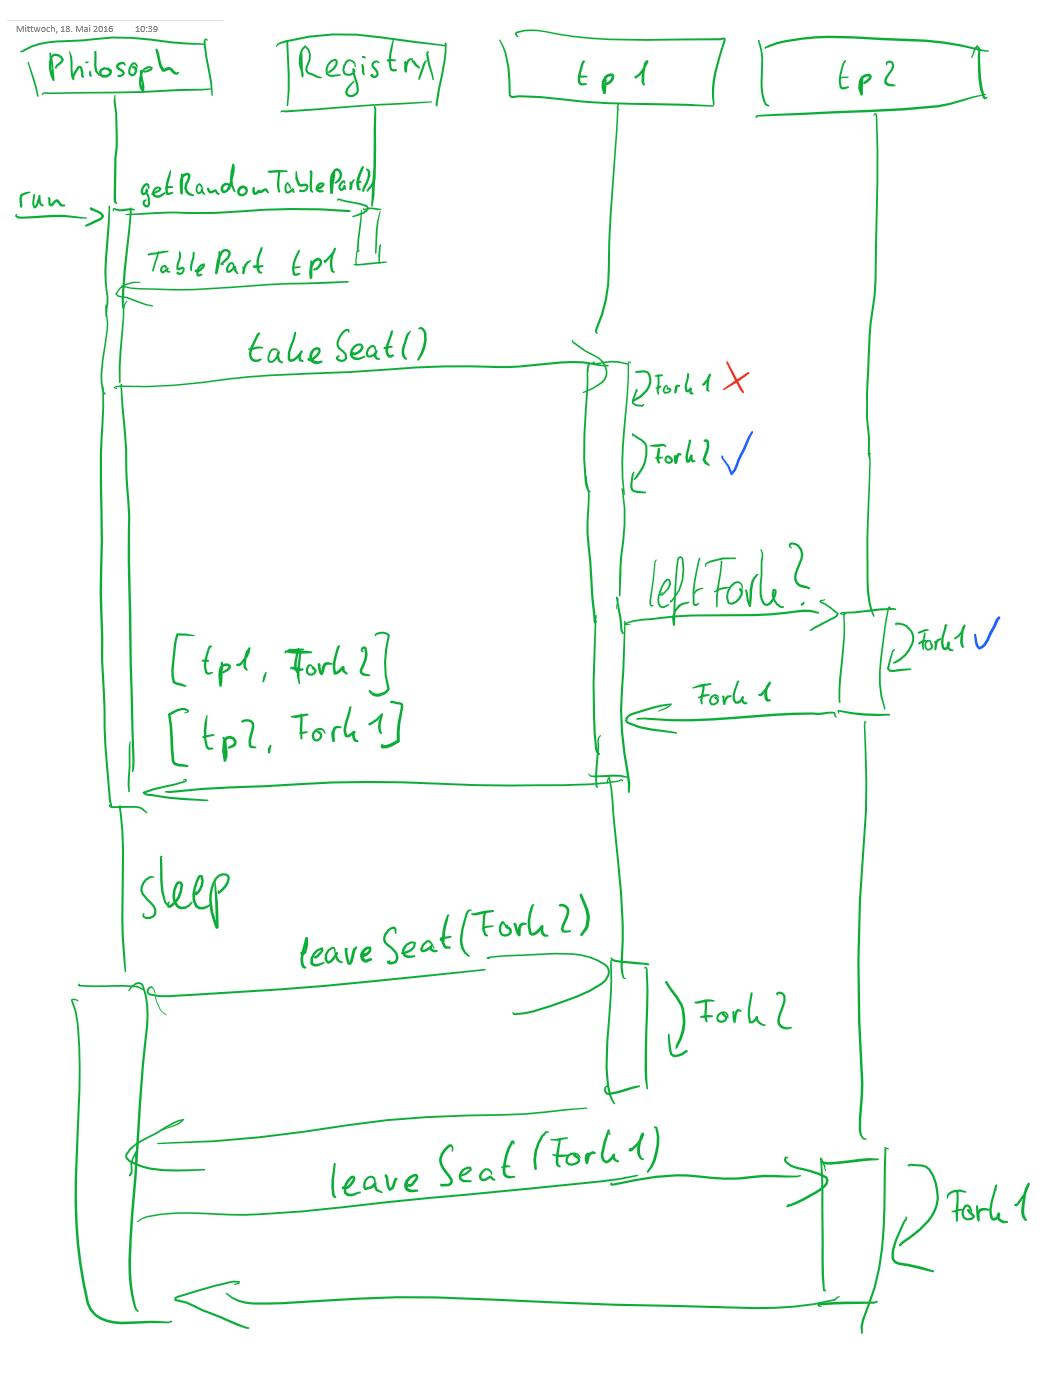 Mittwoch, 18. Mai 2016 10:39
Philosoph Registry tp1 tp2
getRandomTablePart()
run
TablePart tp1
takeSeat()
Fork1
Fork2
leftFork?
Fork1
[tp1, Fork2]
Fork1
[tp2, Fork1]
sleep
leaveSeat(Fork2)
Fork2
leaveSeat(Fork1)
Fork1